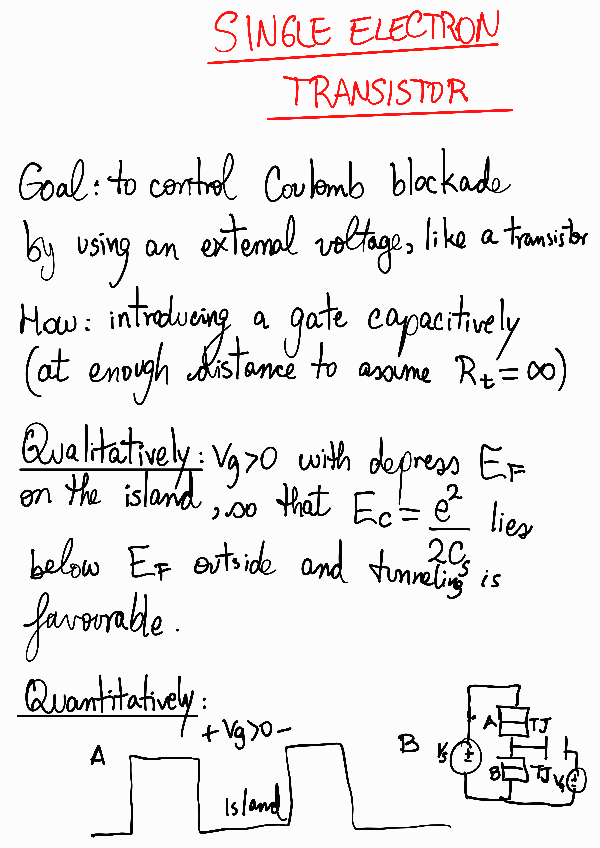 SINGLE ELECTRON
TRANSISTOR
Goal: to control Coulomb blockade
by using an external voltage, like a transistor
How: introducing a gate capacitively
(at enough distance to assume Rt = ∞)
Qualitatively: Vg>0 with depress EF
on the island, so that Ec = e²/2Cs lies
below EF outside and tunneling is
favourable.
Quantitatively:
A + Vg>0 -
island
B
A TJ
B TJ